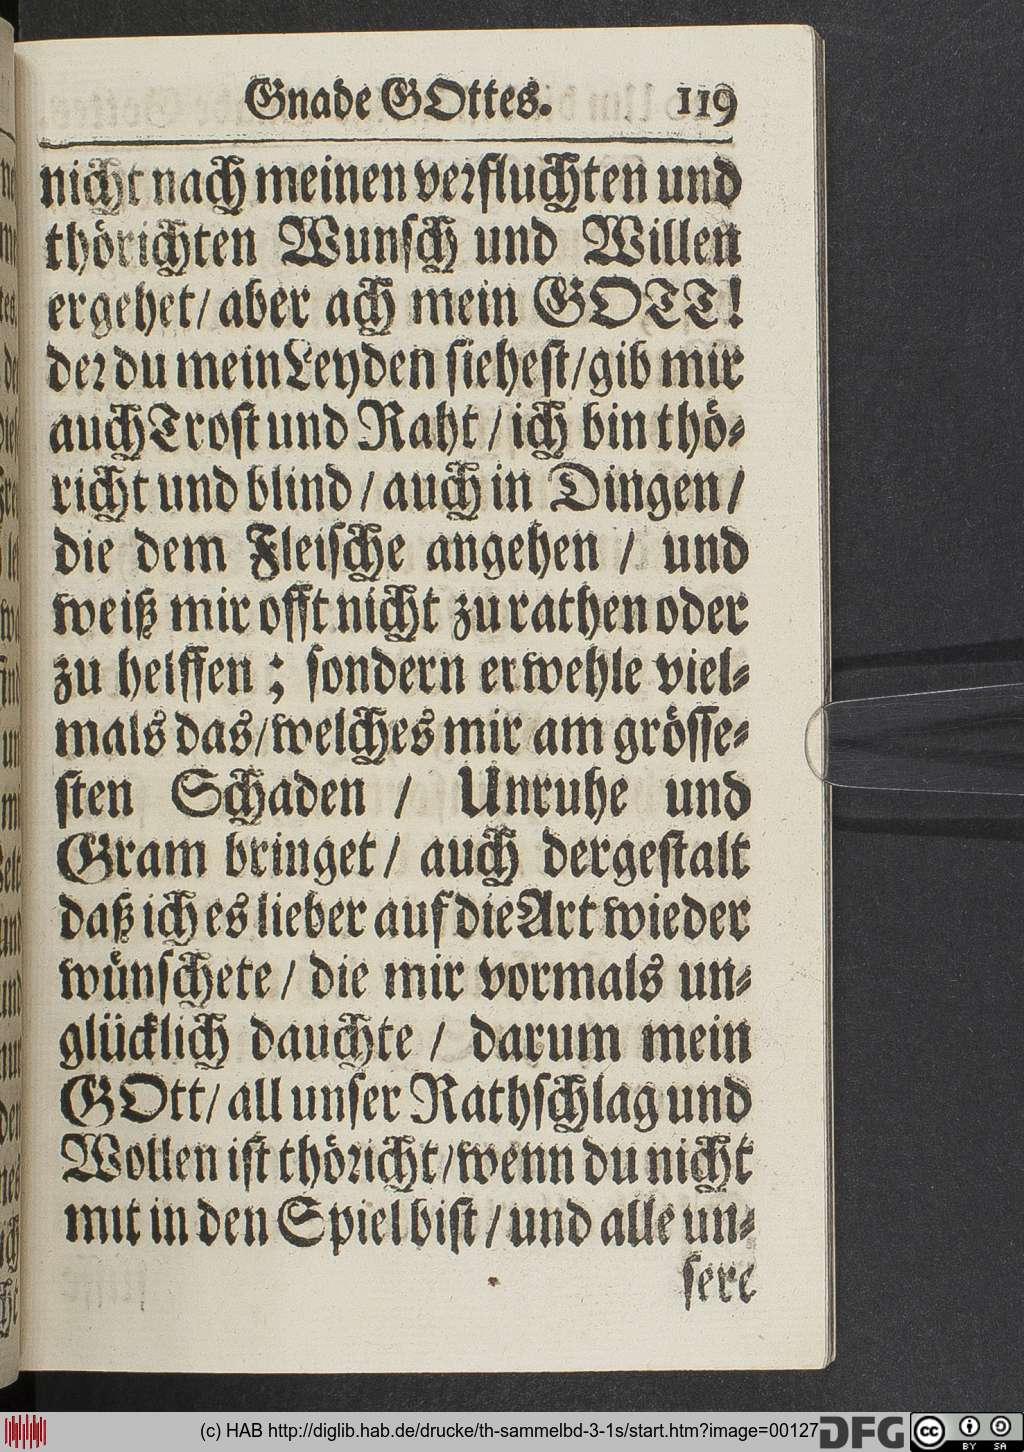 Gnade GOttes. 119
nicht nach meinen verfluchten und
thörichten Wunsch und Willen
ergehet/ aber ach mein GOTT!
der du mein Leyden siehest/gib mir
auch Trost und Raht / ich bin thö-
richt und blind / auch in Dingen /
die dem Fleische angehen / und
weiß mir offt nicht zu rathen oder
zu helffen ; sondern erwehle viel-
mals das/welches mir am grösse-
sten Schaden / Unruhe und
Gram bringet / auch dergestalt
daß ich es lieber auf die Art wieder
wünschete / die mir vormals un-
glücklich dauchte / darum mein
GOtt/ all unser Rathschlag und
Wollen ist thöricht/wenn du nicht
mit in den Spiel bist / und alle un-
sere
(c) HAB http://diglib.hab.de/drucke/th-sammelbd-3-1s/start.htm?image=00127
DFG
cc BY SA